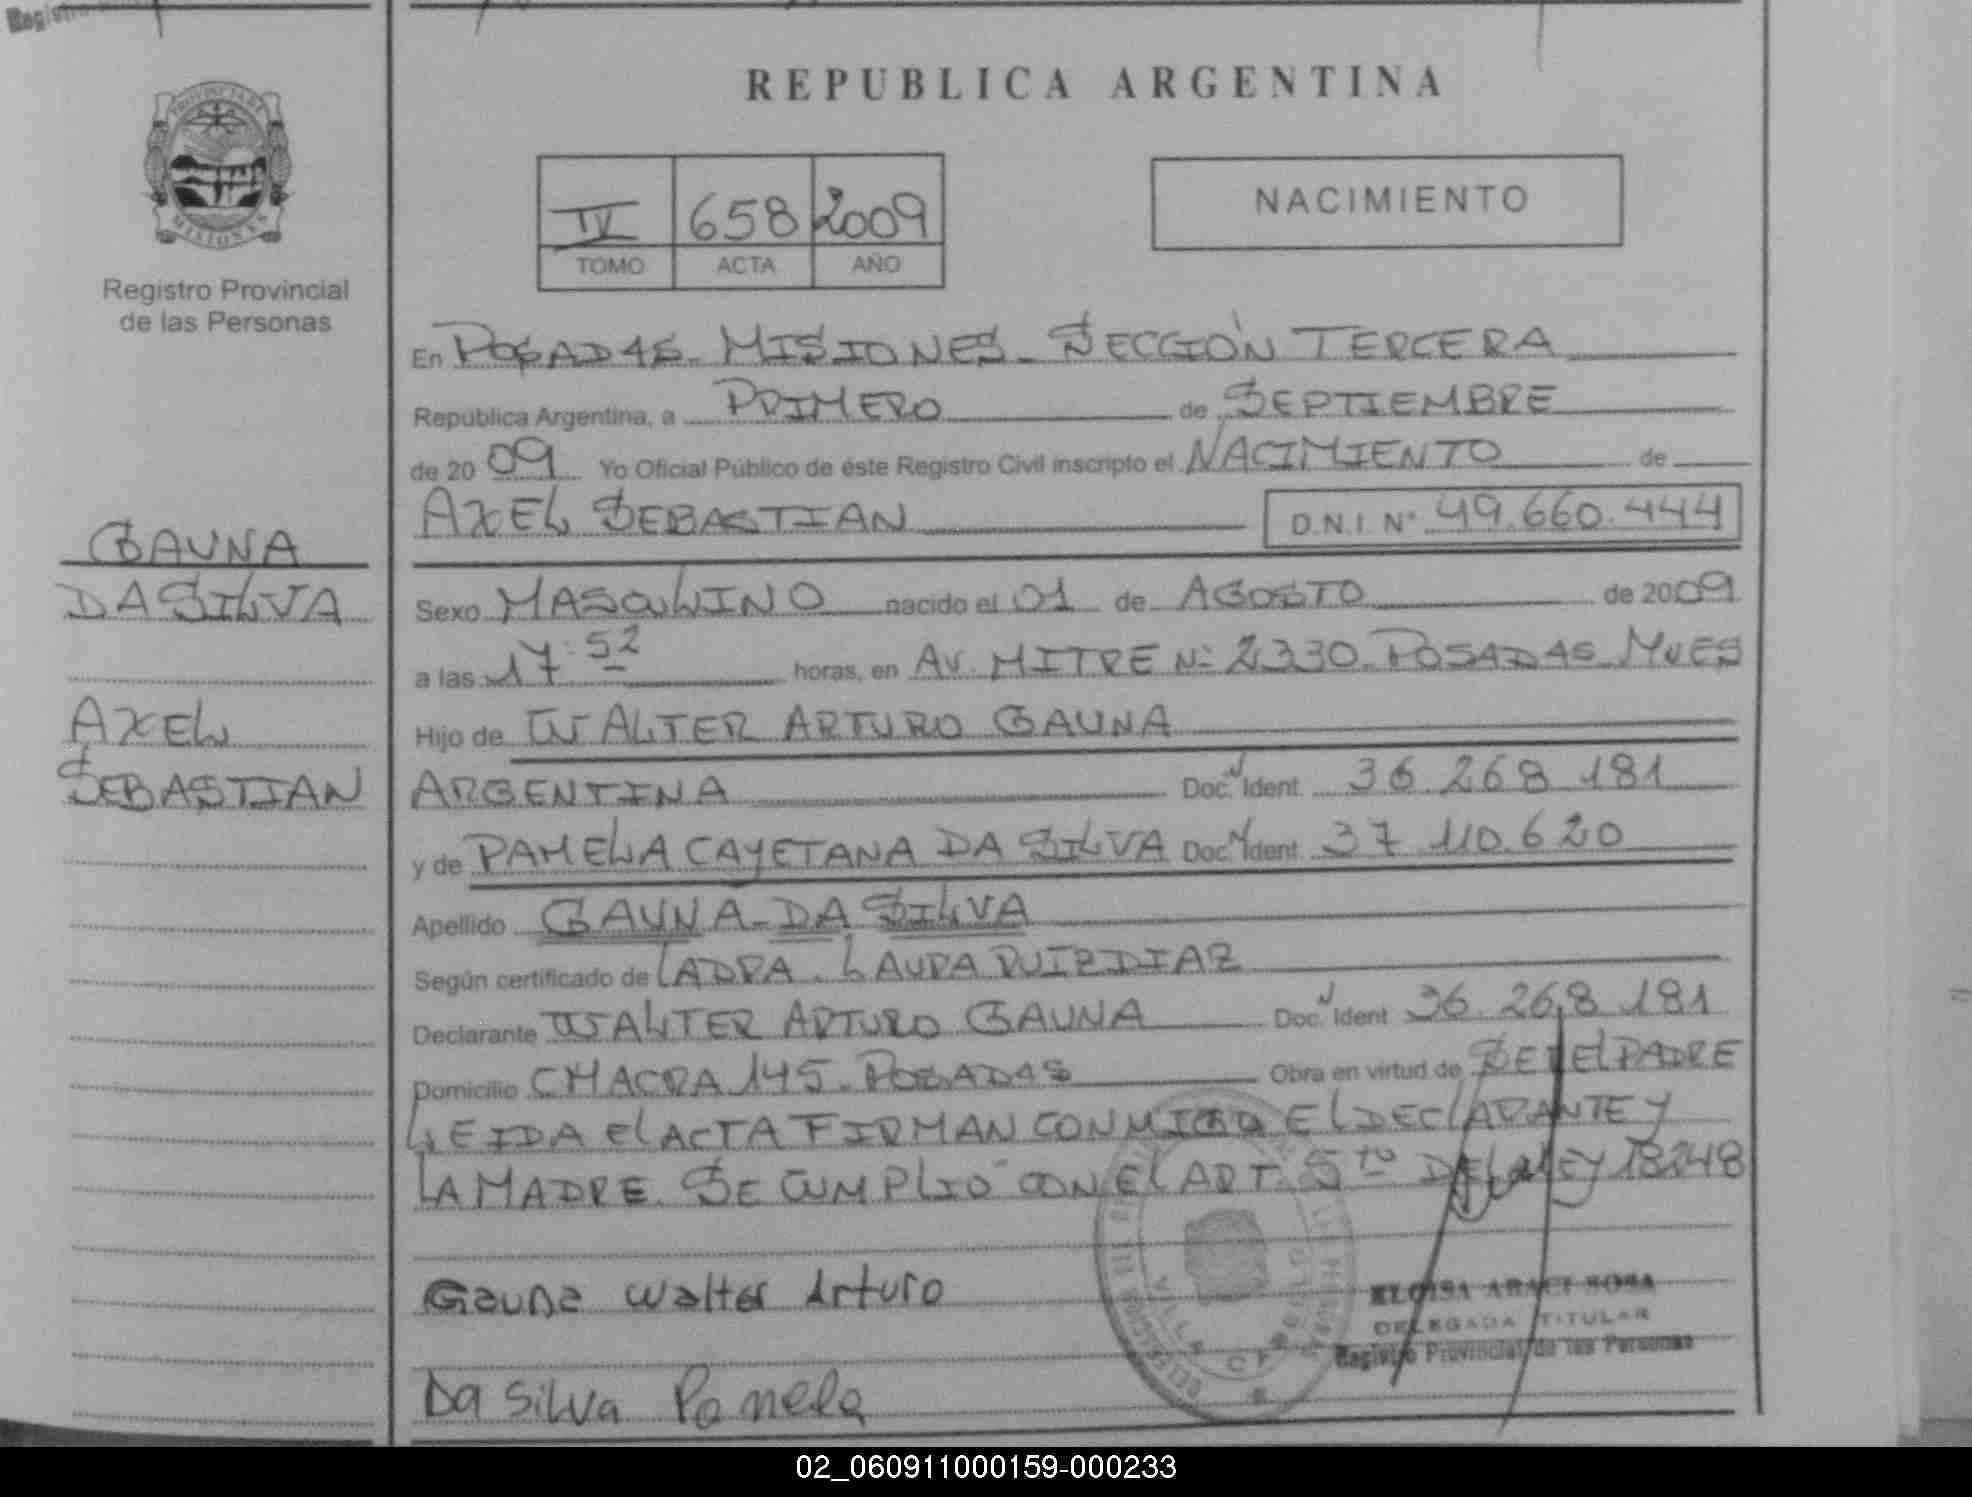 REPUBLICA ARGENTINA
PROVINCIA DE
MISIONES
Registro Provincial
de las Personas
IV 658 2009
TOMO ACTA AÑO
NACIMIENTO
En POSADAS - MISIONES - SECCIÓN TERCERA
República Argentina, a PRIMERO de SEPTIEMBRE
de 20 09 Yo Oficial Público de éste Registro Civil inscripto el NACIMIENTO de
AXEL SEBASTIAN D.N.I. N° 49.660.444
GAUNA
DA SILVA
AXEL
SEBASTIAN
Sexo MASCULINO nacido el 01 de AGOSTO de 2009
a las 17:52 horas, en AV. MITRE N° 2330 - POSADAS - MNES
Hijo de WALTER ARTURO GAUNA
ARGENTINA Doc. Ident. 36.268.181
y de PAMELA CAYETANA DA SILVA Doc. Ident. 37.110.620
Apellido GAUNA - DA SILVA
Según certificado de LA DRA. LAURA RUIZ DIAZ
Declarante WALTER ARTURO GAUNA Doc. Ident 36.268.181
Domicilio CHACRA 145 - POSADAS Obra en virtud de SER EL PADRE
LEIDA El ACTA FIRMAN CONMIGO El DEClARANTE Y
LA MADRE. SE CUMPLIÓ CON El ART. 5to DE LA LEY 18248
Gauna Walter Arturo
Da Silva Pamela
ELOISA ARACI SOSA
DELEGADA TITULAR
Registro Provincial de las Personas
02_060911000159-000233